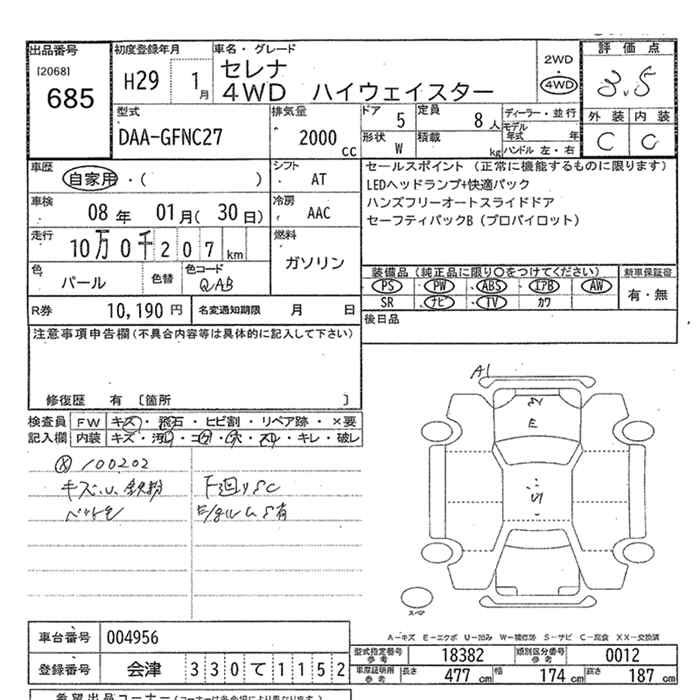 出品番号 初度登録年月 車名・グレード 評価点
[2068]
685
H29 1月
セレナ
4WD ハイウェイスター
2WD
・
4WD
3.5
型式 排気量 ドア 5 定員 8人 ディーラー・並行
外装 内装
DAA-GFNC27 2000cc
形状 W 積載 kg モデル年式 年
ハンドル 左・右
C C
車歴 自家用・( )
シフト AT
セールスポイント(正常に機能するものに限ります)
LEDヘッドランプ+快適パック
ハンズフリーオートスライドドア
セーフティパックB(プロパイロット)
車検 08年 01月(30日)
冷房 AAC
走行 10万0千207km
燃料 ガソリン
色 パール 色替 色コード QAB
装備品(純正品に限り○をつけてください) 新車保証書
PS PW ABS エアB AW
SR ナビ TV カワ
有・無
R券 10,190円 名変通知期限 月 日
後日品
注意事項申告欄(不具合内容等は具体的に記入して下さい)
修復歴 有 [箇所 ]
検査員記入欄
FW キズ・飛石・ヒビ割・リペア跡・×要
内装 キズ・汚れ・コゲ・穴・スレ・キレ・破レ
100202
キズ.U.鉄粉
下廻りSC
A1
E
S
A-キズ E-エクボ U-凹み W-補修跡 S-サビ C-腐食 XX-交換済
車台番号 004956
登録番号 会津 330て1152
型式指定番号 参考 18382 類別区分番号 参考 0012
車庫証明用 参考 長さ 477cm 幅 174cm 高さ 187cm
希望出品コーナー